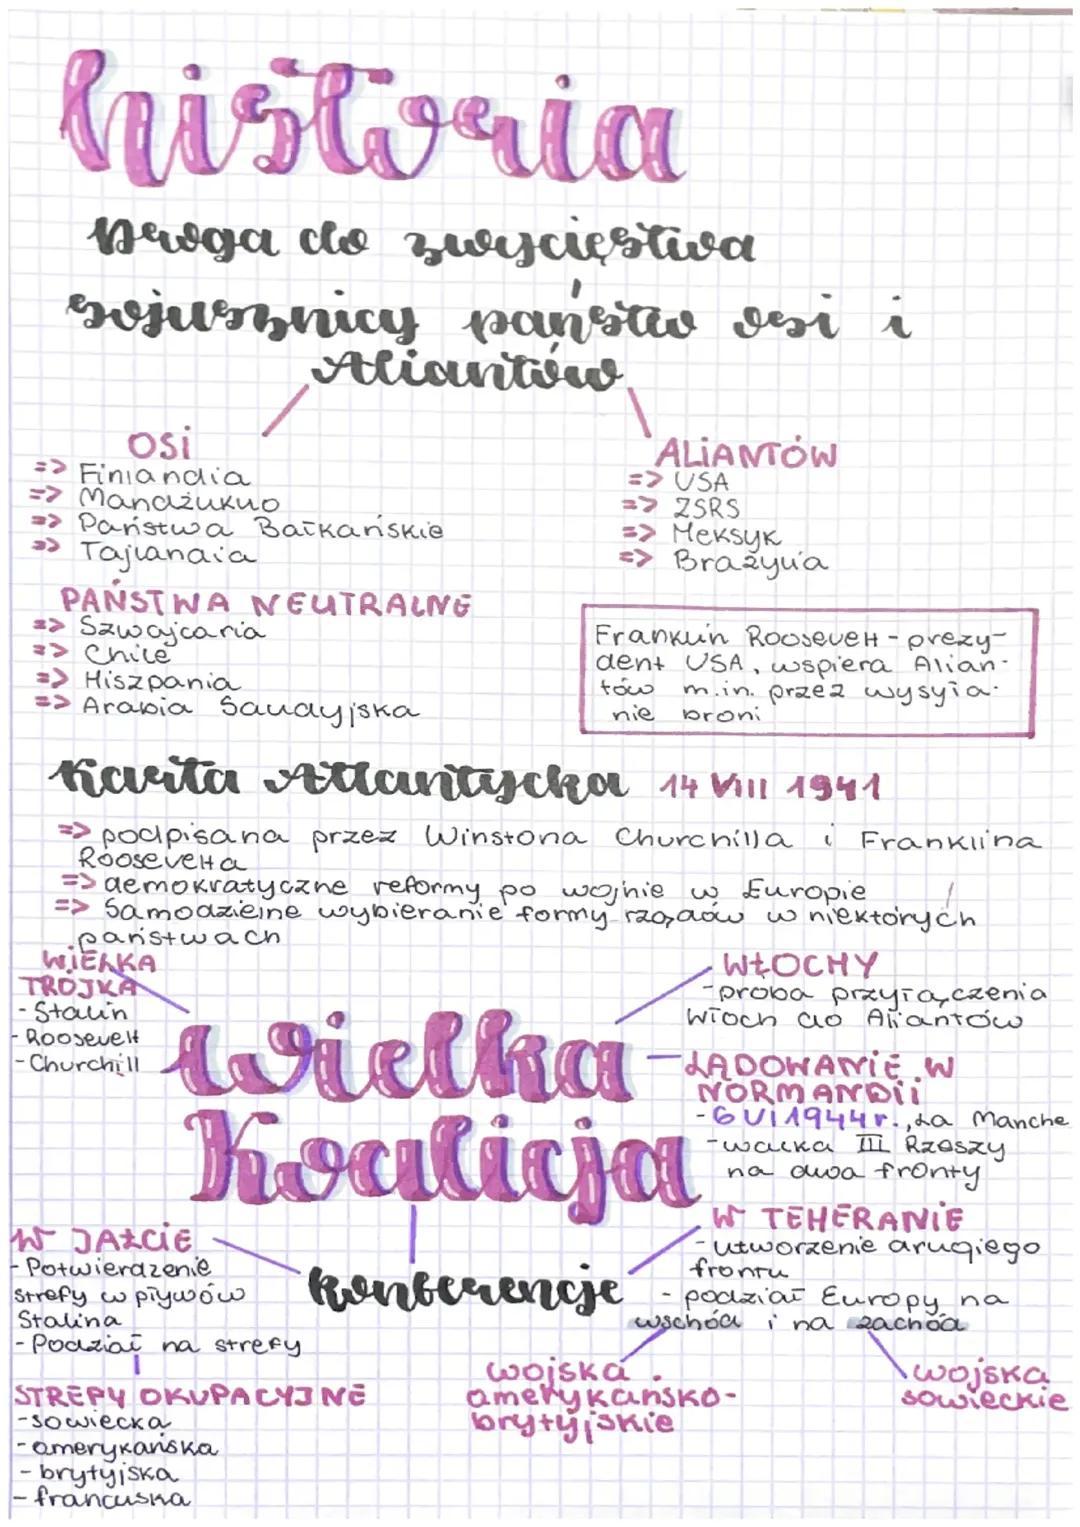 historia
Droga do zwycięstwa
sojusznicy państw osi i
Aliantów
OSI
=> Finlandia
=> Mandżukuo
=> Państwa Bałkańskie
=> Tajlandia
ALIANTÓW
=> USA
=> ZSRS
=> Meksyk
=> Brazylia
PAŃSTWA NEUTRALNE
=> Szwajcaria
=> Chile
=> Hiszpania
=> Arabia Saudyjska
Franklin Roosevelt - prezy-
dent USA, wspiera Alian-
tów m.in. przez wysyła-
nie broni
Karta Atlantycka 14 VIII 1941
=> podpisana przez Winstona Churchilla i Franklina
Roosevelta
=> demokratyczne reformy po wojnie w Europie
=> Samodzielne wybieranie formy rządów w niektórych
państwach
WIELKA
TRÓJKA
- Stalin
- Roosevelt
- Churchill
Wielka
Koalicja
WŁOCHY
- próba przyłączenia
Włoch do Aliantów
LĄDOWANIE W
NORMANDII
- 6 VI 1944 r., La Manche
- walka III Rzeszy
na dwa fronty
W TEHERANIE
- utworzenie drugiego
frontu
- podział Europy na
wschód i na zachód
wojska
amerykańsko-
brytyjskie
wojska
sowieckie
konferencje
W JAŁCIE
- Potwierdzenie
strefy wpływów
Stalina
- Podział na strefy
STREFY OKUPACYJNE
- sowiecka
- amerykańska
- brytyjska
- francuska